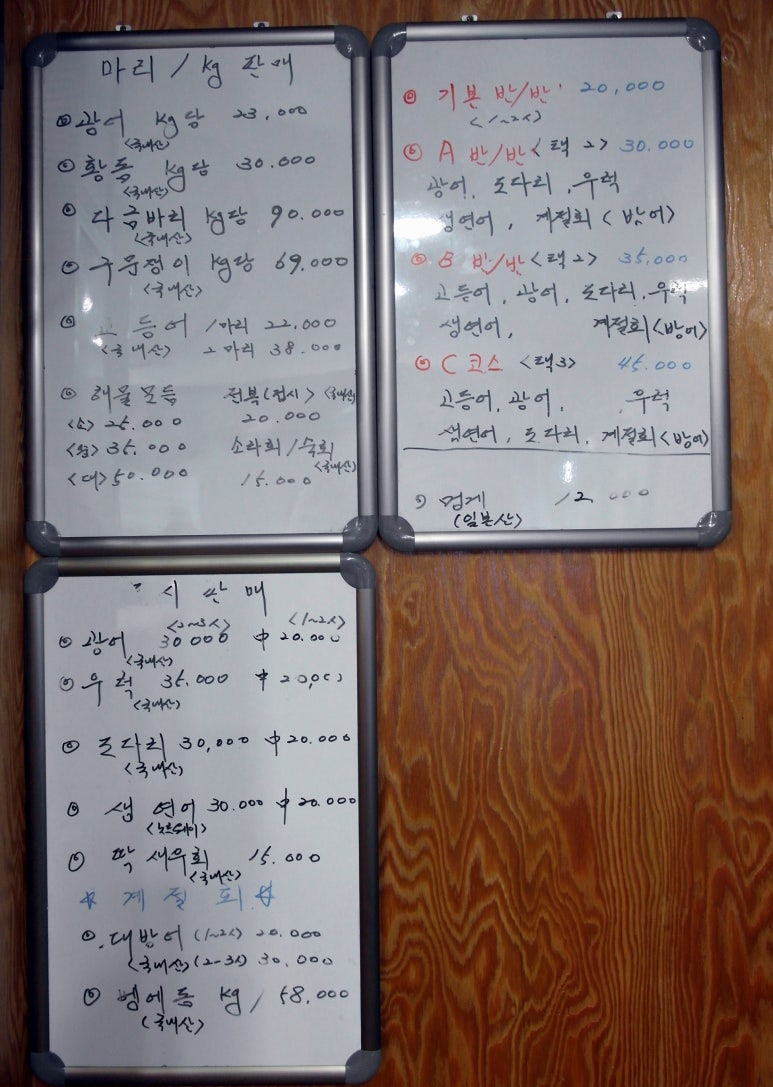 마리 / kg 판매
광어 kg당 23,000
<국내산>
황돔 kg당 30.000
<국내산>
다금바리 kg당 90.000
<국내산>
구문쟁이 kg당 69.000
<국내산>
고등어 1마리 22.000
<국내산> 2마리 38.000
해물모듬 전복(접시) <국내산>
<소> 25.000 20.000
<중> 35.000 소라회/숙회
<국내산>
<대> 50.000 15.000
기본 반/반 20,000
<1~2人>
A 반/반 <택 2> 30.000
광어, 도다리, 우럭
생연어, 계절회 <방어>
B 반/반 <택2> 35,000
고등어, 광어, 도다리, 우럭
생연어, 계절회<방어>
C 코스 <택3> 45.000
고등어, 광어, 우럭
생연어, 도다리, 계절회<방어>
멍게 12 000
(일본산)
시 판매
<2~3人> <1~2人>
광어 30 000 中 20.000
<국내산>
우럭 35.000 20,000
<국내산>
도다리 30,000 中 20.000
<국내산>
생 연어 30.000 中 20.000
<노르웨이>
딱 새우회 15.000
<국내산>
계 절 회
대방어 (1~2人) 20.000
<국내산> (2-3人) 30.000
벵에돔 kg / 58,000
(국내산)